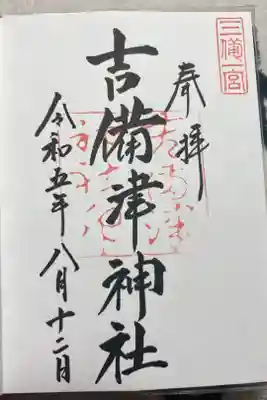 三備一宮
奉拝
吉備津神社
令和五年八月十二日